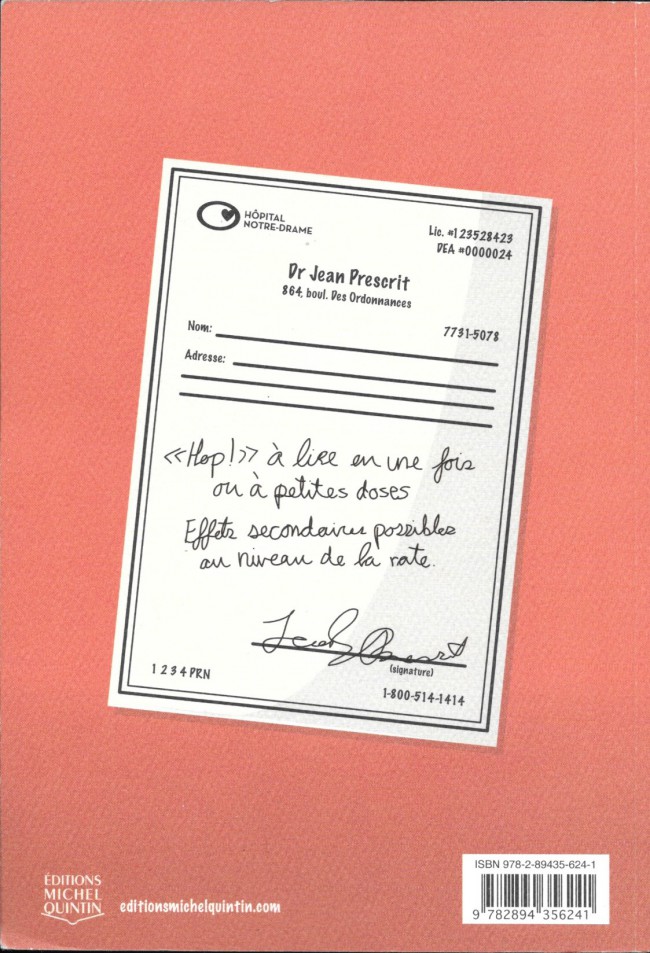 HÔPITAL
NOTRE-DRAME
Lic. #123528423
DEA #0000024
Dr Jean Prescrit
864, boul. Des Ordonnances
Nom:
7731-5078
Adresse:
«Hop!» à lire en une fois
ou à petites doses
Effets secondaires possibles
au niveau de la rate.
Jean Prescrit
(signature)
1 2 3 4 PRN
1-800-514-1414
ÉDITIONS
MICHEL
QUINTIN
editionsmichelquintin.com
ISBN 978-2-89435-624-1
9 782894 356241